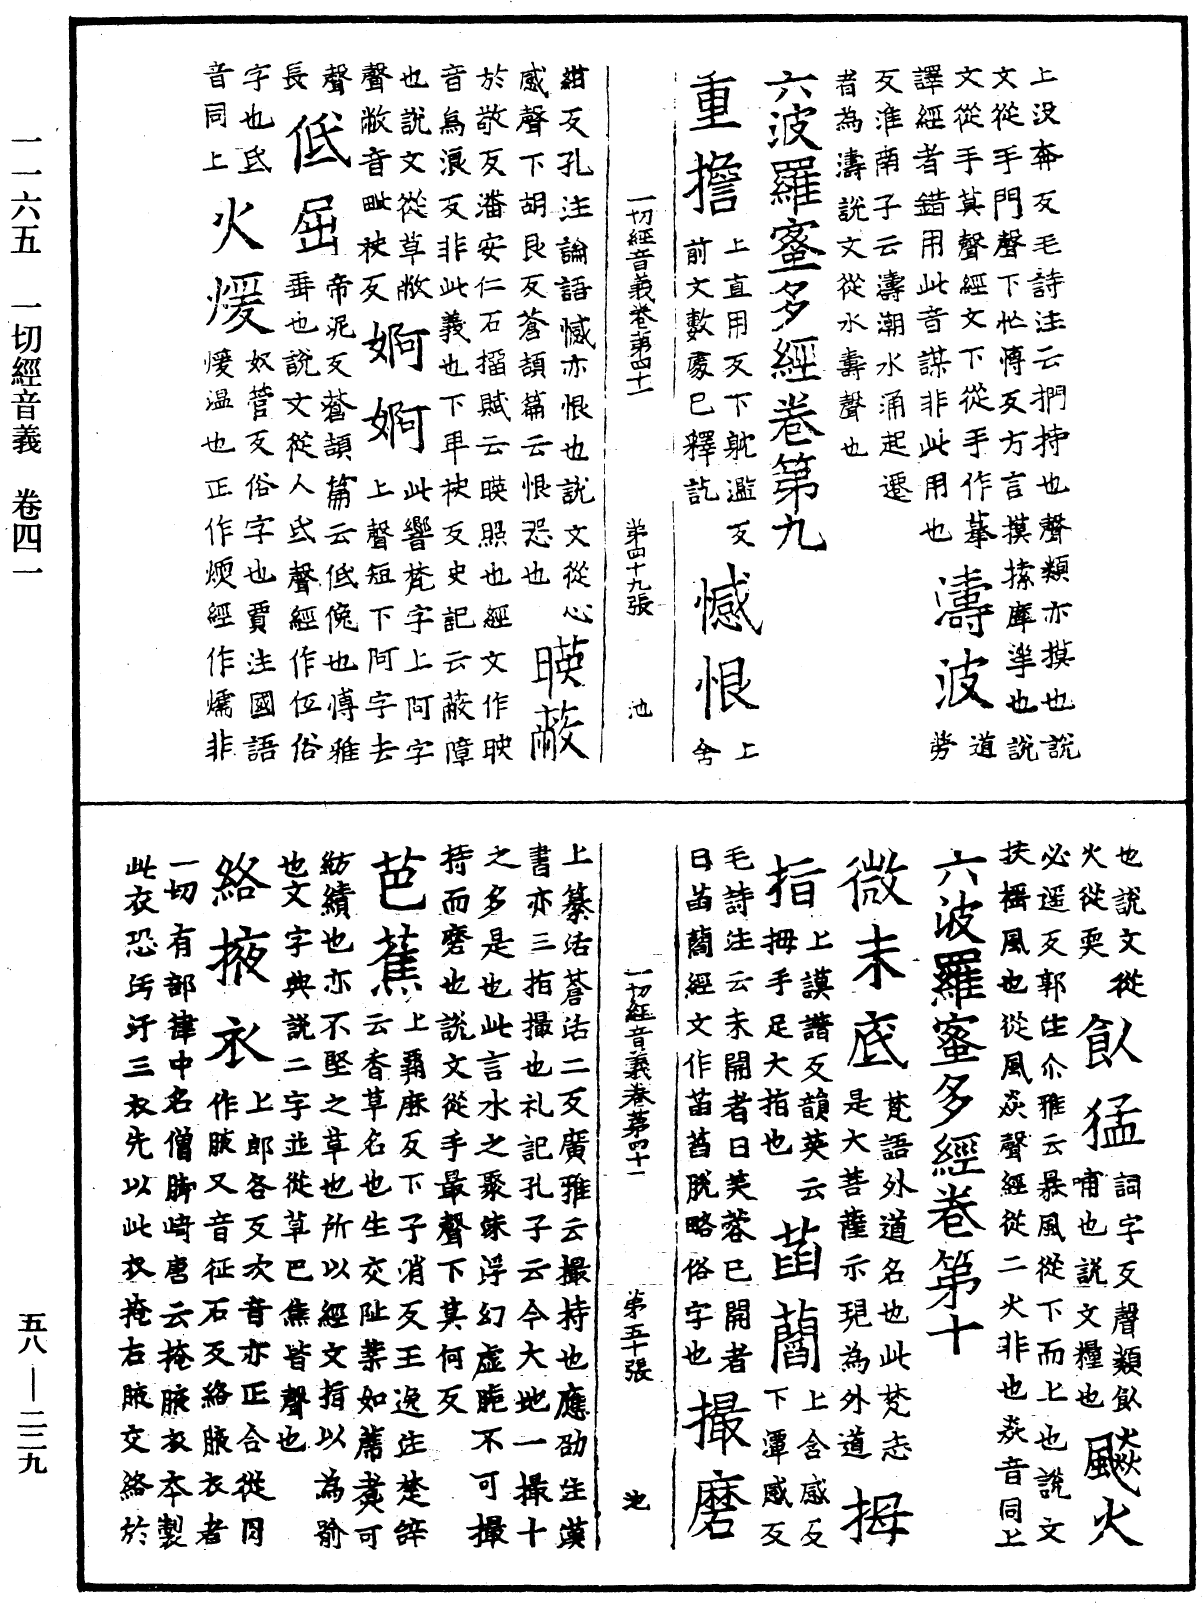 一一六五　一切經音義　卷四一
五八—二三九
上没奔反毛詩注云捫持也聲類亦摸也說
文從手門聲下忙愽反方言摸搎摩挲也說
文從手莫聲經文下從手作摹
譯經者錯用此音謀非此用也
濤波
道
勞
反淮南子云濤潮水涌起遷
者為濤說文從水壽聲也
六波羅蜜多經卷第九
重擔
上直用反下躭濫反
前文數處已釋訖
憾恨
上
含
一切經音義卷第四十一　第四十九張　池
紺反孔注論語憾亦恨也說文從心
感聲下胡艮反蒼頡篇云恨恐也
暎蔽
於敬反潘安仁石榴賦云暎照也經文作映
音烏浪反非此義也下卑袂反史記云蔽障
也說文從草敝
聲敝音毗袂反
婀婀
此響梵字上阿字
上聲短下阿字去
聲
長
低屈
帝泥反蒼頡篇云低俛也愽雅
垂也說文從人氐聲經作仾俗
字也氐
音同上
火煖
奴管反俗字也賈注國語
煖温也正作煗經作燸非
也說文從
火從耎
飤猛
詞字反聲類飤
哺也說文糧也
飇火
必遥反郭注介雅云暴風從下而上也說文
扶摇風也從風猋聲經從三火非也焱音同上
六波羅蜜多經卷第十
微末底
梵語外道名也此梵志
是大菩薩示現為外道
拇
指
上謨譜反韻英云
拇手足大指也
菡䕞
上含感反
下潭感反
毛詩注云未開者曰芙蓉已開者
曰菡䕞經文作菡萏脱略俗字也
撮磨
一切經音義卷第四十一　第五十張　池
上纂活蒼活二反廣雅云撮持也應劭注漢
書亦三指撮也礼記孔子云今大地一撮十
之多是也此言水之聚沫浮幻虛脆不可撮
持而磨也說文從手最聲下莫何反
芭蕉
上覇麻反下子消反王逸注楚辞
云香草名也生交阯葉如蓆煑可
紡績也亦不堅之草也所以經文指以為喻
也文字典說二字並從草巴焦皆聲也
絡掖衣
上郎各反次音亦正合從月
作腋又音征石反絡腋衣者
一切有部律中名僧脚崎唐云掩腋衣本製
此衣恐污汙三衣先以此衣掩右腋交絡於